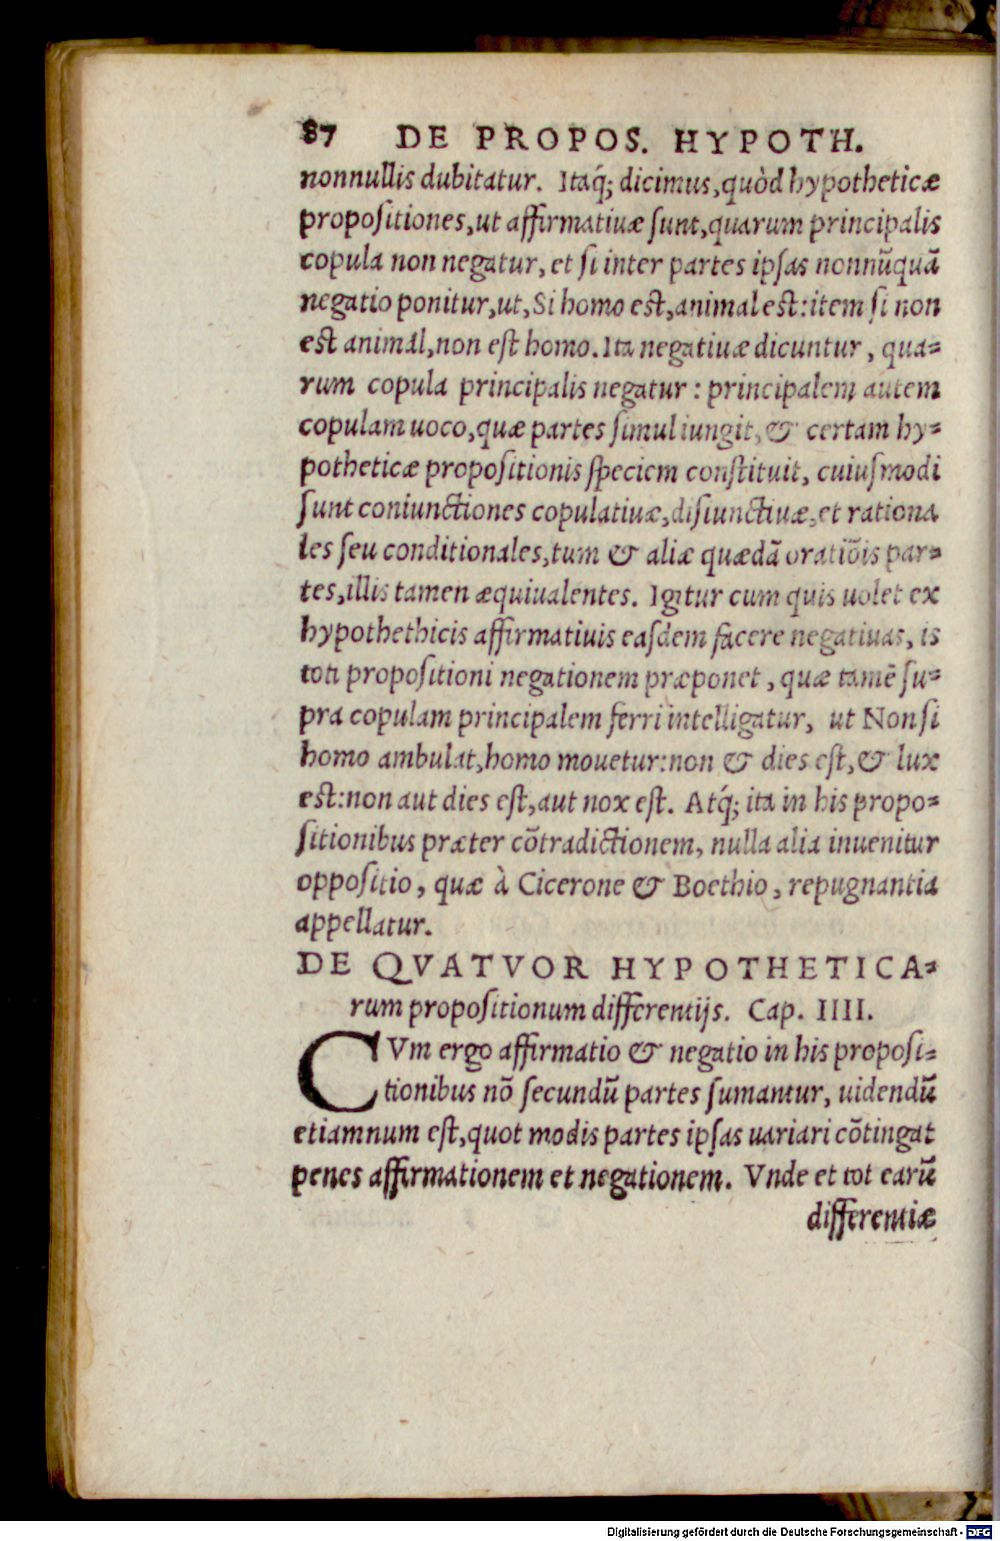 87 DE PROPOS. HYPOTH.
nonnullis dubitatur. Itaq́; dicimus, quòd hypotheticæ
propositiones, ut affirmatiuæ sunt, quarum principalis
copula non negatur, et si inter partes ipsas nonnūquā
negatio ponitur, ut, Si homo est, animal est: item si non
est animal, non est homo. Ita negatiuæ dicuntur, qua-
rum copula principalis negatur: principalem autem
copulam uoco, quæ partes simul iungit, & certam hy-
potheticæ propositionis speciem constituit, cuiusmodi
sunt coniunctiones copulatiuæ, disiunctiuæ, et rationa
les seu conditionales, tum & aliæ quædā oratiōis par-
tes, illis tamen æquiualentes. Igitur cum quis uolet ex
hypothethicis affirmatiuis easdem facere negatiuas, is
toti propositioni negationem præponet, quæ tamē su-
pra copulam principalem ferri intelligatur, ut Non si
homo ambulat, homo mouetur: non & dies est, & lux
est: non aut dies est, aut nox est. Atq́; ita in his propo-
sitionibus præter cōtradictionem, nulla alia inuenitur
oppositio, quæ à Cicerone & Boethio, repugnantia
appellatur.
DE QVATVOR HYPOTHETICA-
rum propositionum differentijs. Cap. IIII.
CVm ergo affirmatio & negatio in his proposi-
tionibus nō secundū partes sumantur, uidendū
etiamnum est, quot modis partes ipsas uariari cōtingat
penes affirmationem et negationem. Vnde et tot earū
differentiæ
Digitalisierung gefördert durch die Deutsche Forschungsgemeinschaft - DFG